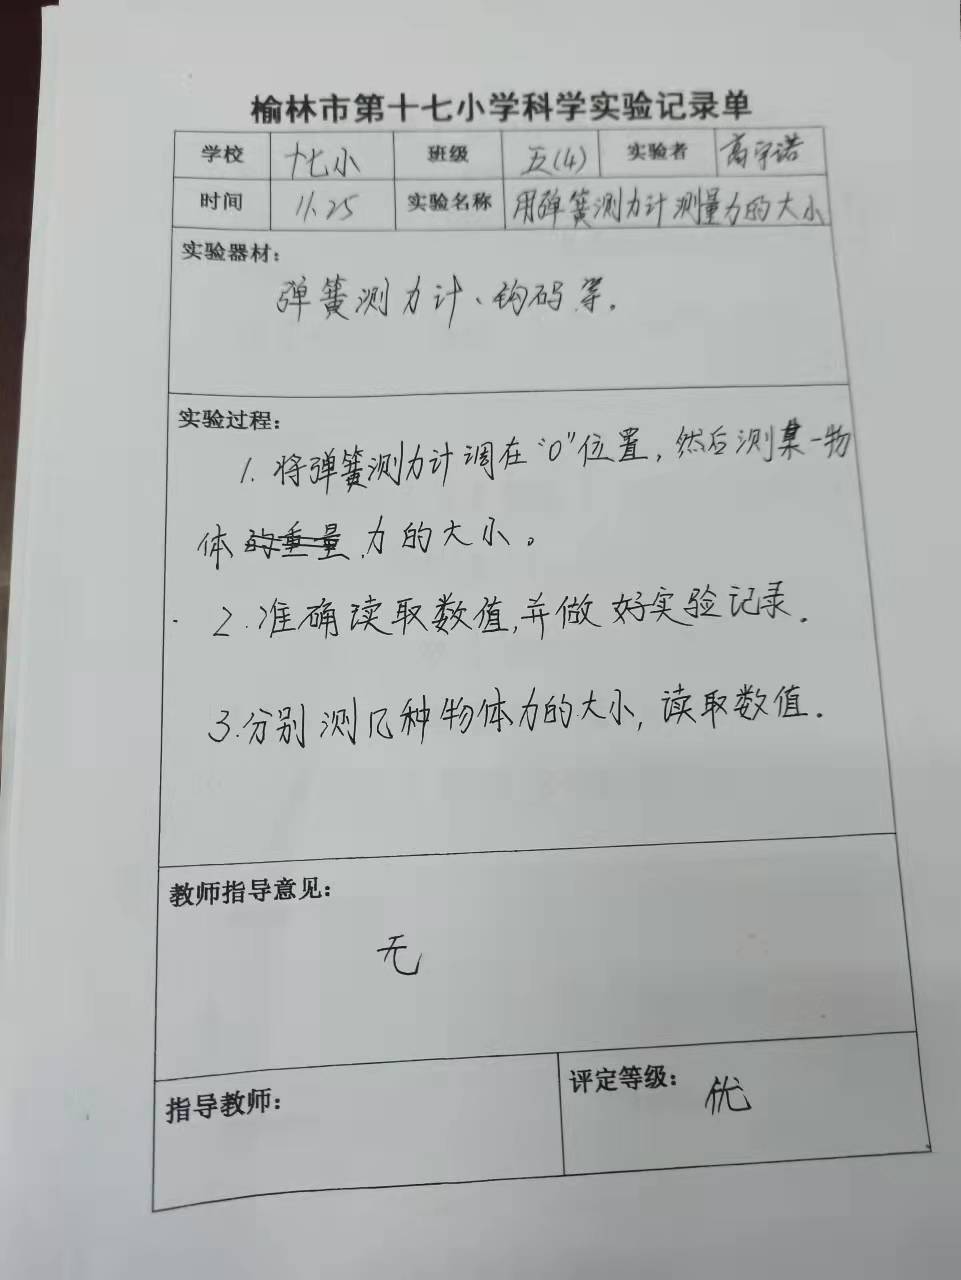 榆林市第十七小学科学实验记录单
学校 十七小 班级 五(4) 实验者 高宇诺
时间 11.25 实验名称 用弹簧测力计测量力的大小
实验器材:
弹簧测力计、钩码等.
实验过程:
1. 将弹簧测力计调在“0”位置,然后测某一物
体的重量力的大小。
2.准确读取数值,并做好实验记录.
3.分别测几种物体力的大小,读取数值.
教师指导意见:
无
指导教师:
评定等级: 优